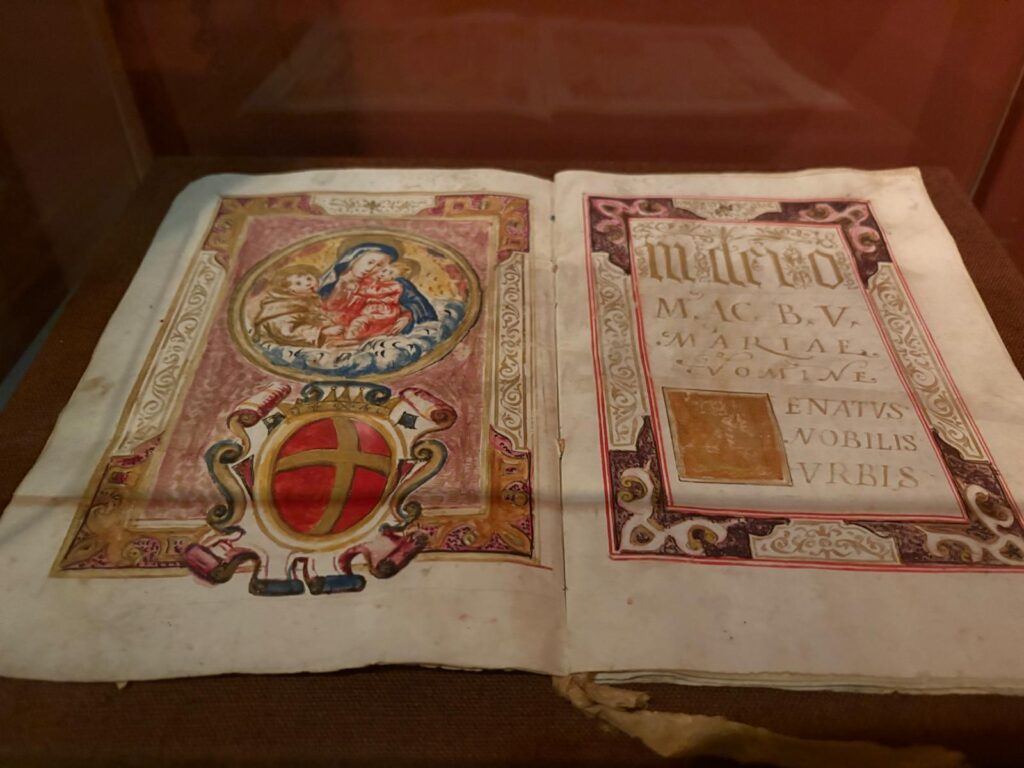 In dei o
M. AC. B. V.
MARIAE
NOMINE
ENATVS
NOBILIS
VRBIS